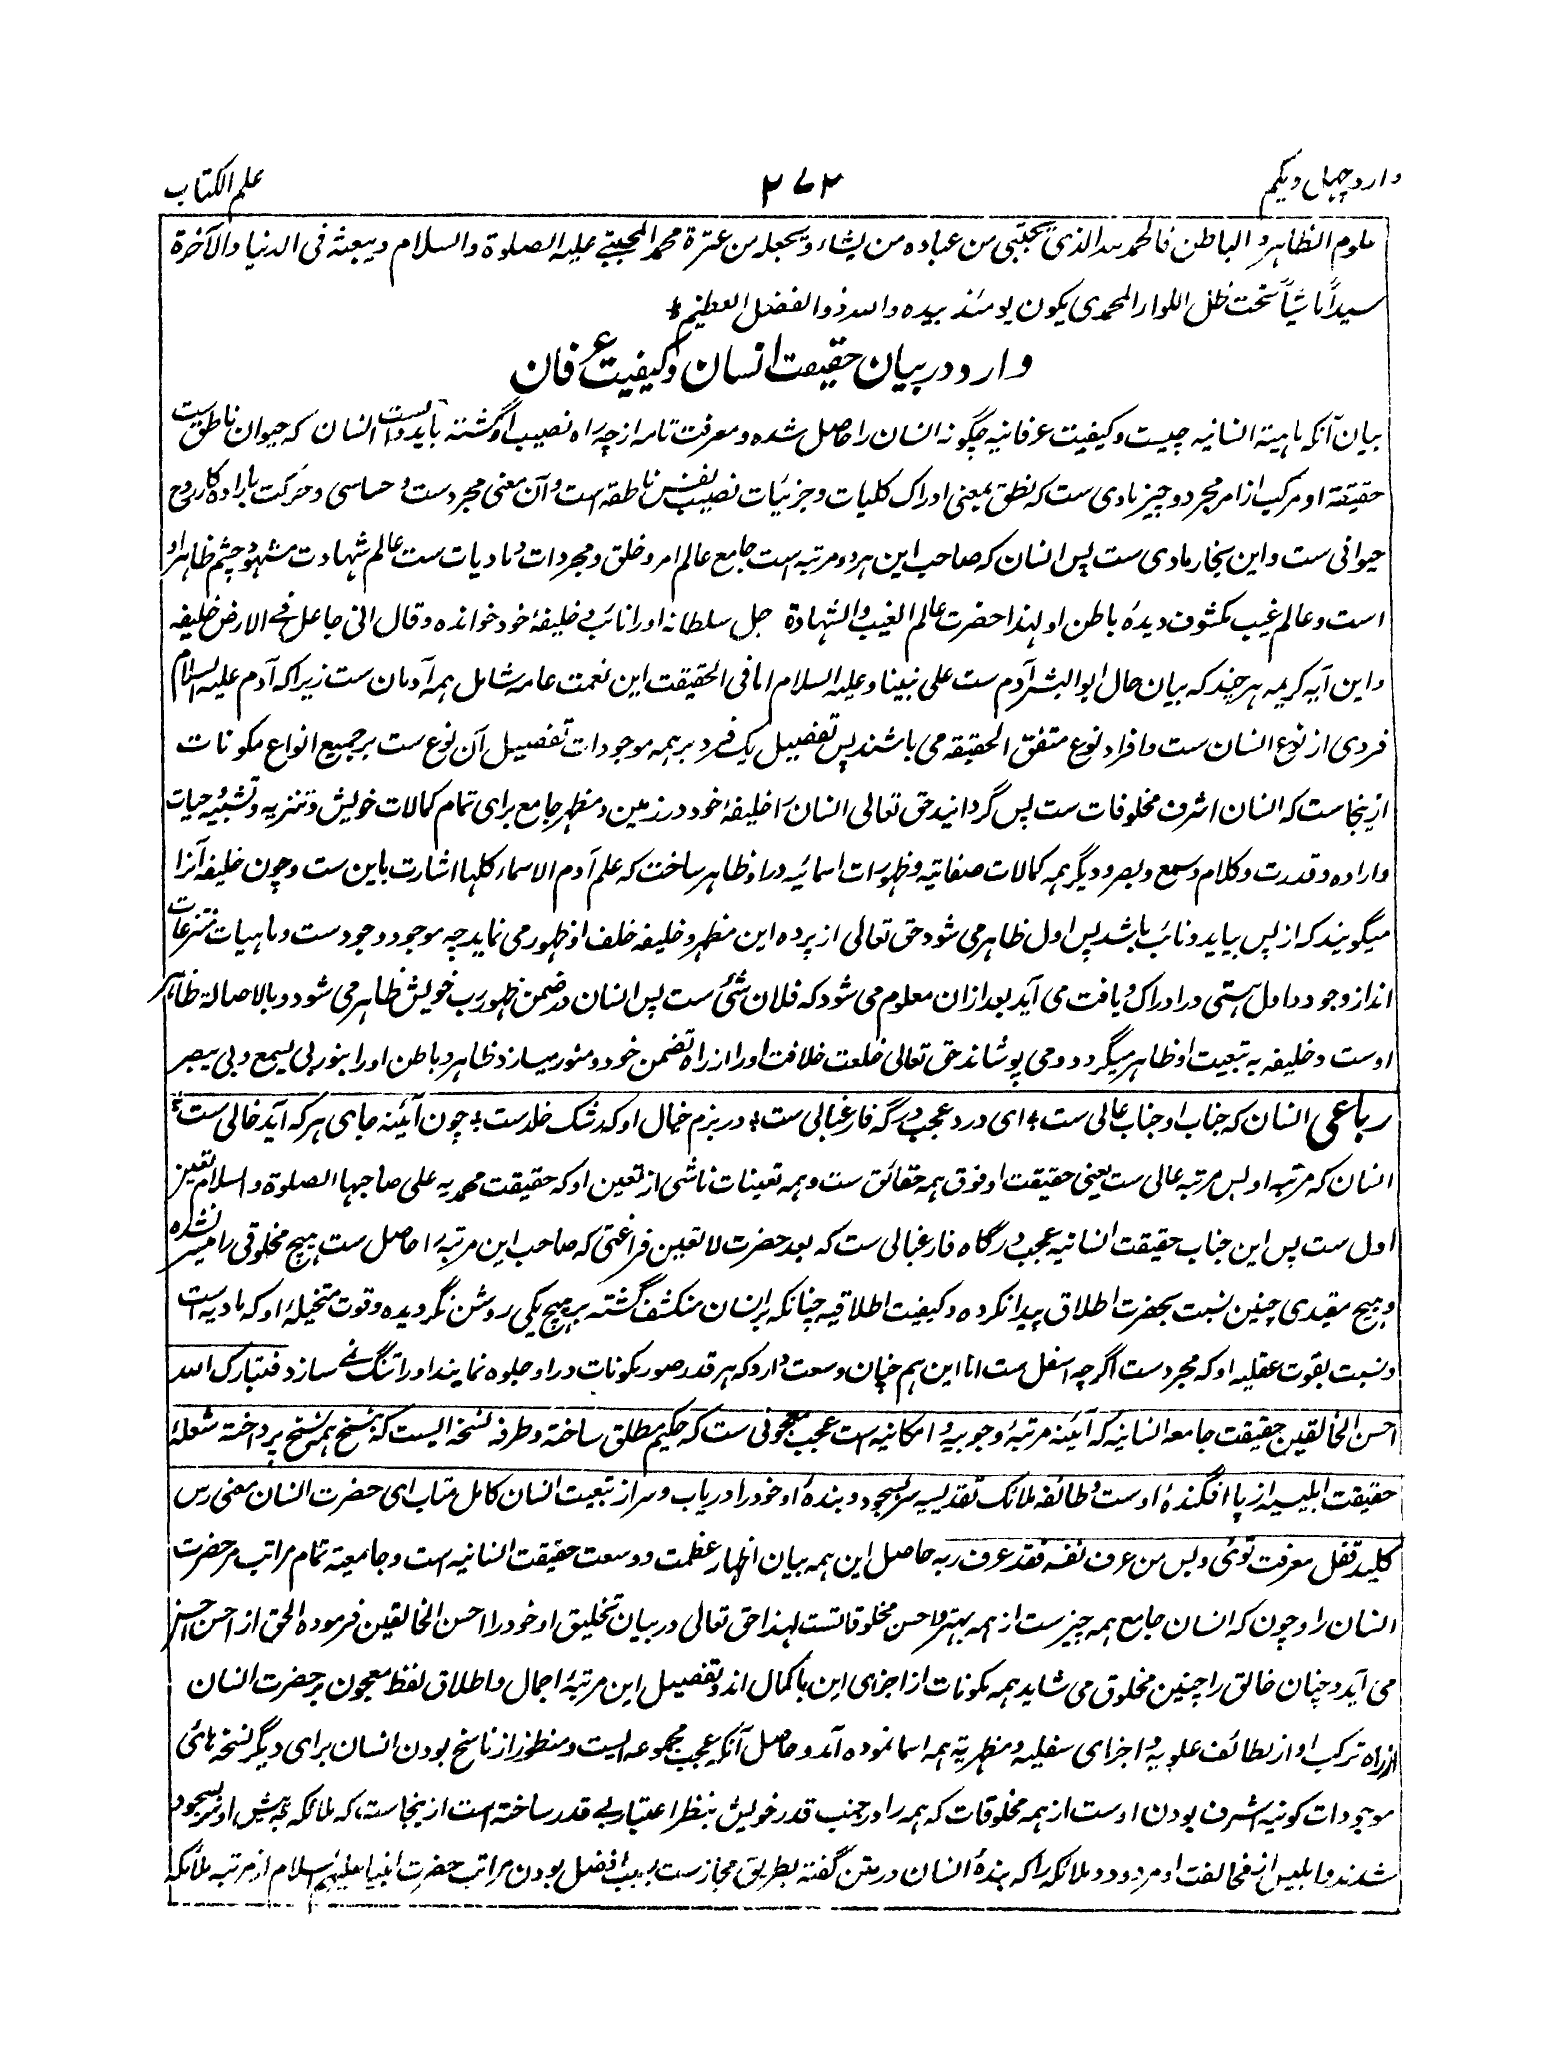 وارد چهل و یکم
۲۷۲
علم الکتاب
علوم الظاهر و الباطن فالحمد لله الذی یجتبی من عباده من یشاء و یجعله من عترة محمد المجتبی علیه الصلوة والسلام و یبعثه فی الدنیا والآخرة
سیداً ناشیاً تحت ظل اللواء المحمدی یکون یومئذ بیده والله ذوالفضل العظیم
وارد در بیان حقیقت انسان و کیفیت عرفان
بیان آنکه ماهیته انسانیه چیست و کیفیت عرفانیه چگونه انسان را حاصل شده و معرفت تامه از چه راه نصیب او گشته باید دانست انسان که حیوان ناطق ست
حقیقة او مرکب از امر مجرد و چیز مادی ست که نطق بمعنی ادراک کلیات و جزئیات نصیب نفس ناطقه است و آن معنی مجرد ست و حساسی و حرکت بارادہ کار روح
حیوانی ست و این بخار مادی ست پس انسان که صاحب این هر دو مرتبه است جامع عالم امر و خلق و مجردات و مادیات ست عالم شهادت مشهود چشم ظاهر او
است و عالم غیب مکشوف دیدهٔ باطن او لهذا حضرت عالم الغیب والشهادة جل سلطانه او را نائب و خلیفهٔ خود خوانده و قال انی جاعل فی الارض خلیفه
و این آیه کریمه هر چند که بیان حال ابوالبشر آدم ست علی نبینا و علیه السلام اما فی الحقیقت این نعمت عامه شامل همه آدمان ست زیرا که آدم علیه السلام
فردی از نوع انسان ست و افراد نوع متفق الحقیقه می باشند پس تفضیل یک فرد بر همه موجودات تفضیل آن نوع ست بر جمیع انواع مکونات
ازینجاست که انسان اشرف مخلوقات ست پس گردانید حق تعالی انسان را خلیفهٔ خود در زمین و مظهر جامع برای تمام کمالات خویش و تنزیه و تشبیه حیات
و اراده و قدرت و کلام و سمع و بصر و دیگر همه کمالات صفاتیه و ظهورات اسمائیه در او ظاهر ساخت که علم آدم الاسماء کلها اشارت باین ست و چون خلیفه آنرا
میگویند که از پس بیاید و نائب باشد پس اول ظاهر می شود حق تعالی از پرده این مظهر و خلیفه خلف او ظهور می نماید چه موجود وجود ست و ماهیات منتزعات
اند از وجود و اول هستی در ادراک و یافت می آید بعد ازان معلوم می شود که فلان شئ ست پس انسان در ضمن ظهور رب خویش ظاهر می شود و بالاصالة ظاهر
اوست و خلیفه به تبعیت او ظاهر میگردد و می پوشاند حق تعالی خلعت خلافت او را از راه تضمن خود و منور میسازد ظاهر و باطن او را بنور بی یسمع و بی یبصر
رباعی انسان که جناب او جناب عالی ست ای درد عجب درگه فارغبالی ست در بزم خیال او که رشک خلد ست چون آئینه جای هر که آید خالی ست
انسان که مرتبه او بس مرتبه عالی ست یعنی حقیقت او فوق همه حقائق ست و همه تعینات ناشی از تعین او که حقیقت محمدیه علی صاحبها الصلوة و السلام تعین
اول ست پس این جناب حقیقت انسانیه عجب درگاه فارغبالی ست که بعد حضرت لا تعین فراغتی که صاحب این مرتبه را حاصل ست هیچ مخلوقی را میسر نشده
و هیچ مقیدی چنین نسبت بحضرت اطلاق پیدا نکرده و کیفیت اطلاقیه چنانکه بر انسان منکشف گشته بر هیچ یکی روشن نگردیده و قوت متخیلهٔ او که مادیه است
و نسبت بقوت عقلیه او که مجرد ست اگرچه اسفل ست اما این هم چنان وسعت دارد که هر قدر صور مکونات در او جلوه نمایند او را تنگ نمی سازد فتبارک الله
احسن الخالقین حقیقت جامعه انسانیه که آئینه مرتبهٔ وجوبیه و امکانیه است عجب معجونی ست که حکیم مطلق ساخته و طرفه نسخه ایست که بنسخ همه نسخ پرداخته شعلهٔ
حقیقت ابلیسیه از پا افگندهٔ اوست و طائفه ملائک تقدیسیه سر بسجود و بندهٔ او خود را دریاب و سر از تبعیت انسان کامل متاب ای حضرت انسان معنی رس
کلید قفل معرفت توئی و بس من عرف نفسه فقد عرف ربه حاصل این همه بیان اظهار عظمت و وسعت حقیقت انسانیه است و جامعیة تمام مراتب مر حضرت
انسان را و چون که انسان جامع همه چیز ست از همه بهتر و احسن مخلوقاتست لهذا حق تعالی در بیان تخلیق او خود را احسن الخالقین فرموده الحق از احسن احسن
می آید و چنان خالق را چنین مخلوق می شاید همه مکونات از اجزای این با کمال اند و تفصیل این مرتبهٔ اجمال و اطلاق لفظ معجون بر حضرت انسان
از راه ترکب او از لطائف علویه و اجزای سفلیه و مظهریة همه اسما نموده آمد و حاصل آنکه عجب مجموعه ایست و منظور از ناسخ بودن انسان برای دیگر نسخه های
موجودات کونیه اشرف بودن اوست از همه مخلوقات که همه را در جنب قدر خویش بنظر اعتبار بی قدر ساخته است ازینجاست که ملائکه پیش او سر بسجود
شدند و ابلیس از مخالفت او مردود و ملائکه را که بندهٔ انسان در متن گفته بطریق مجاز ست بسبب افضل بودن مراتب حضرت انبیا علیهم السلام از مرتبه ملائکه